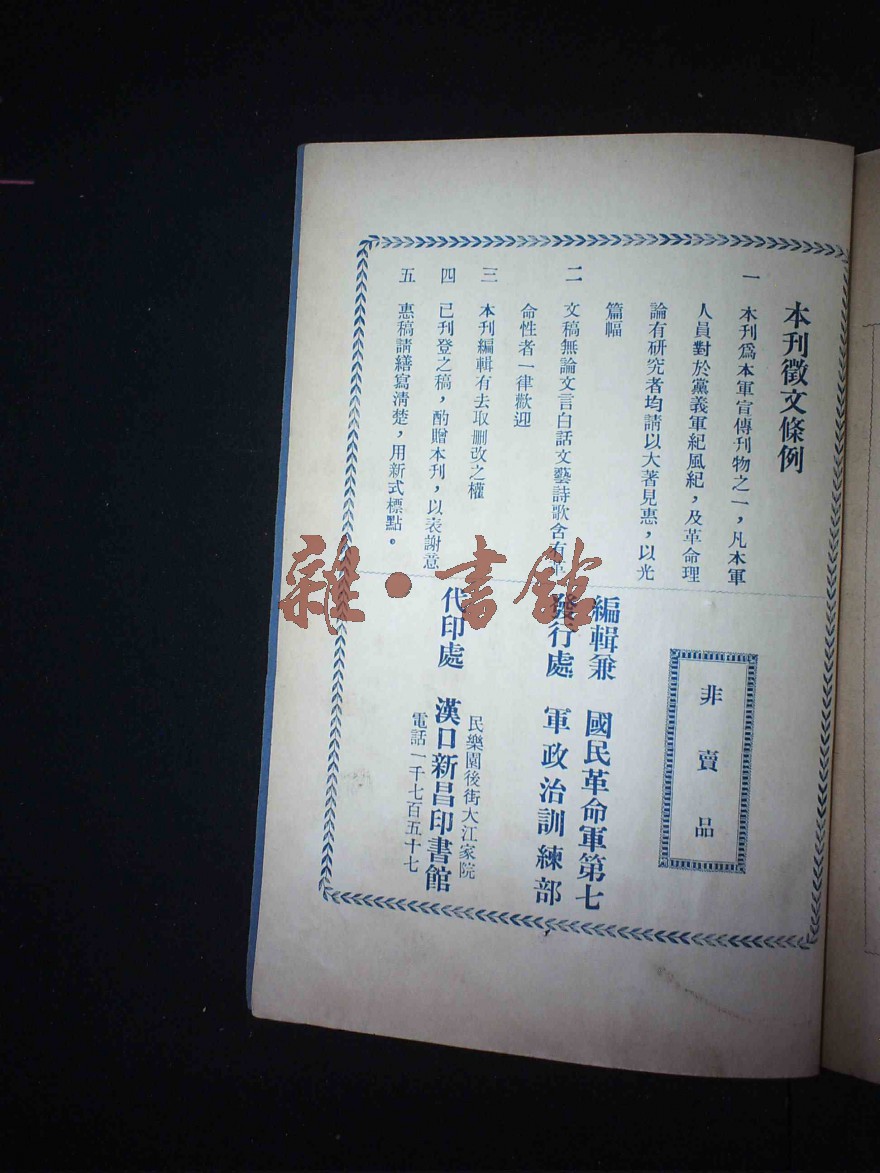 本刊徵文條例
一 本刊爲本軍宣傳刊物之一，凡本軍
人員對於黨義軍紀風紀，及革命理
論有研究者均請以大著見惠，以光
篇幅
二 文稿無論文言白話文藝詩歌含有革
命性者一律歡迎
三 本刊編輯有去取刪改之權
四 已刊登之稿，酌贈本刊，以表謝意
五 惠稿請繕寫清楚，用新式標點。
非賣品
編輯兼
發行處
國民革命軍第七
軍政治訓練部
代印處
民樂園後街大江家院
漢口新昌印書館
電話一千七百五十七
雜·書館